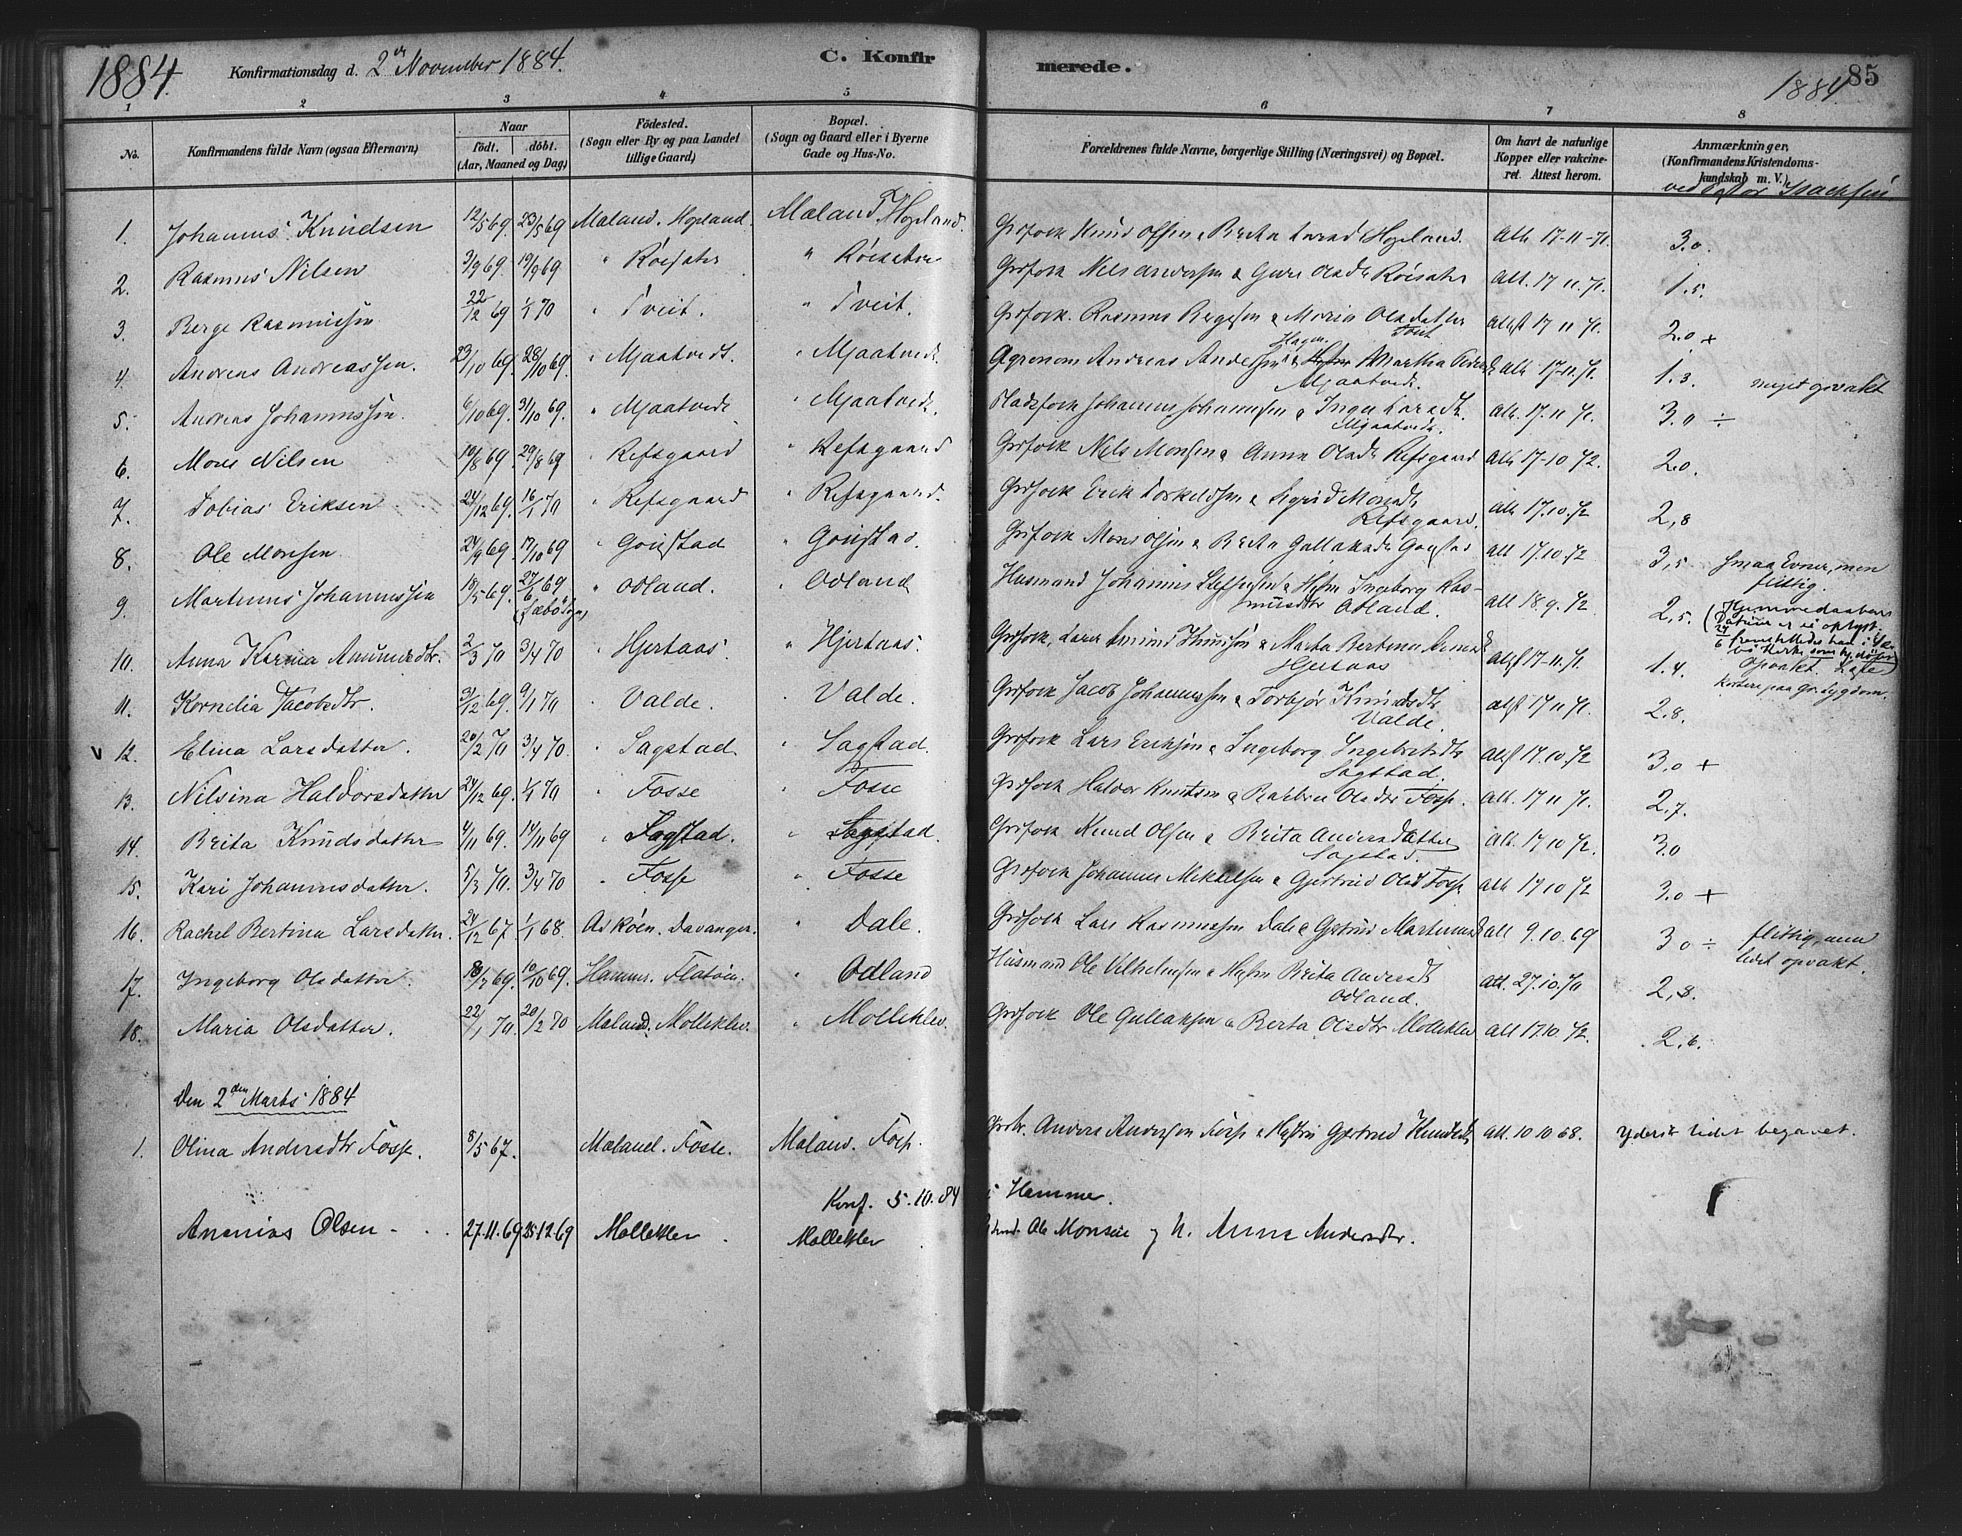 1884. Konfirmationsdag d. 2den November 1884. C. Konfirmerede. 1884 85
1 2 3 4 5 6 7 8
No. Konfirmandens fulde Navn (ogsaa Efternavn) Naar födt. döbt. (Aar, Maaned og Dag) Födested. (Sogn eller By og paa Landet tillige Gaard) Bopæl. (Sogn og Gaard eller i Byerne Gade og Hus-No. Forældrenes fulde Navne, borgerlige Stilling (Næringsvei) og Bopæl. Om havt de naturlige Kopper eller vakcineret. Attest herom. Anmærkninger, (Konfirmandens Kristendomskundskab m. V.)
1. Johannes Knudsen 12/5 69. 23/5 69 Mæland. Hopland. Mæland Hopland. Grdfolk Knud Olsen & Brita Hopland. Att. 17-11-71. 3.0.
2. Rasmus Nilsen 3/9 69 19/9 69 " Röisæter " Grdfolk Nels Andersen & Guri Olsdtr Röisæter Att. 17 11. 71. 1.5.
3. Berge Rasmussen 22/12 69 1/1 70 " Tveit. " Tveit. Grdfolk. Rasmus Bergesen & Maria Olsdatter Tveit Attest 17 11 71. 2.0 +
4. Andreas Andreassen. 23/10 69. 28/10 69. " Mjaatvedt. " Mjaatvedt. Agronom Andreas Andersen & Martha Mjaatvedt. Att. 17-11. 71. 1.3. meget opvakt
5. Andreas Johannessen. 6/10 69. 31/10 69. " Mjaatvedt " Mjaatvedt. Pladsfolk Johannes Johannesen & Inger Mjaatvedt. Att. 17. 11 71. 3.0 ÷
6. Mons Nilsen 10/8 69. 29/8 69 " Refsgaard " Refsgaard Grdfolk Nels Monsen & Anna Olsdtr Refsgaard Att. 17-10 72. 2.0.
7. Tobias Eriksen 24/12 69. 16/1 70 " Refsgaard " Refsgaard. Grdfolk Erik Torkeldsen & Sigrid Monsdtr Refsgaard. Att 17.10.72 2,8
8. Ole Monsen. 24/9 69. 17/10 69 " " Grdfolk Mons Olsen & Brita Att 17.10.72 3,5 smaa Evner, men flittig.
9. Martinus Johannessen 10/5 69. 27/6 69 " Odland. " Odland Husmand Johannes & Ingeborg Rasmusdtr Odland. Att 18.9.72 2,5. (Hjemmedaabens Datum er ei oplyst. 27/6 fremstilledes han i Kirke)
10. Anna Karina Amundsdtr. 2/3 70 3/4 70 " Hjertaas " Hjertaas. Grdfolk. Amund Knudsen & Marta Bertina Hjertaas Attest 17-11. 71. 1.4. Opvakt.
11. Kornelia Jacobsdtr. 31/12 69. 9/1 70 " Valde. " Valde. Grdfolk Jacob Johannessen & Torbjør Knudsdtr Valde. Attest 17 11 71. 2.8.
v 12. Elina Larsdatter. 20/2 70 3/4 70. " Sagstad " Sagstad. Grdfolk Lars Eriksen & Ingeborg Ingebretsdtr Sagstad. Attest 17.10.72 3.0 +
13. Nilsina Haldorsdatter 24/12 69. 1/1 70 " Fosse " Fosse Grdfolk Haldor Knutsen & Barbra Olsdtr Fosse. Att. 17 11 71. 2,7.
14. Brita Knudsdatter 4/11 69. 14/11 69 " Sagstad. " Sagstad. Grdfolk Knud Olsen & Brita Andersdatter Sagstad. Att. 17 10 72. 3.0
15. Kari Johannesdatter. 5/3 70. 3/4 70 " Fosse " Fosse Grdfolk Johannes Mikkelsen & Gjertrud Olsd Fosse Att 17 10 72 3.0 +
16. Rachel Bertina Larsdatter. 24/12 67 1/1 68. Asköen. Davanger. " Dale. Grdfolk Lars Rasmussen Dale & Gjertrud Att 9.10.69 3 0 ÷ flittig, men lidet opvakt.
17. Ingeborg Olsdatter. 18/7 69. 10/10 69. Hammer. Flatöen. " Odland Husmand Ole Vilhelmsen & Brita Andersdtr Odland. Att. 27.10.70 2,8.
18. Maria Olsdatter. 22/1 70. 20/2 70 Mæland. Molleklev. " Molleklev. Grdfolk Ole Gullaksen & Berta Olsdtr Molleklev Att 17.10.72. 2.6.
Den 2den Marts 1884
1. Olina Andersdtr Fosse. 8/5 67. Mæland. Fosse. Mæland. Fosse. Anders Andersen Fosse & Hustru Gjertrud Knutsdtr Att. 10 10 68. yderst lidet begavet.
Konf. 5.10.84 i Hammer.
Ananias Olsen 27.11.69 25.12.69 Molleklev Molleklev Ole Monsen og H. Anna Andersdtr.